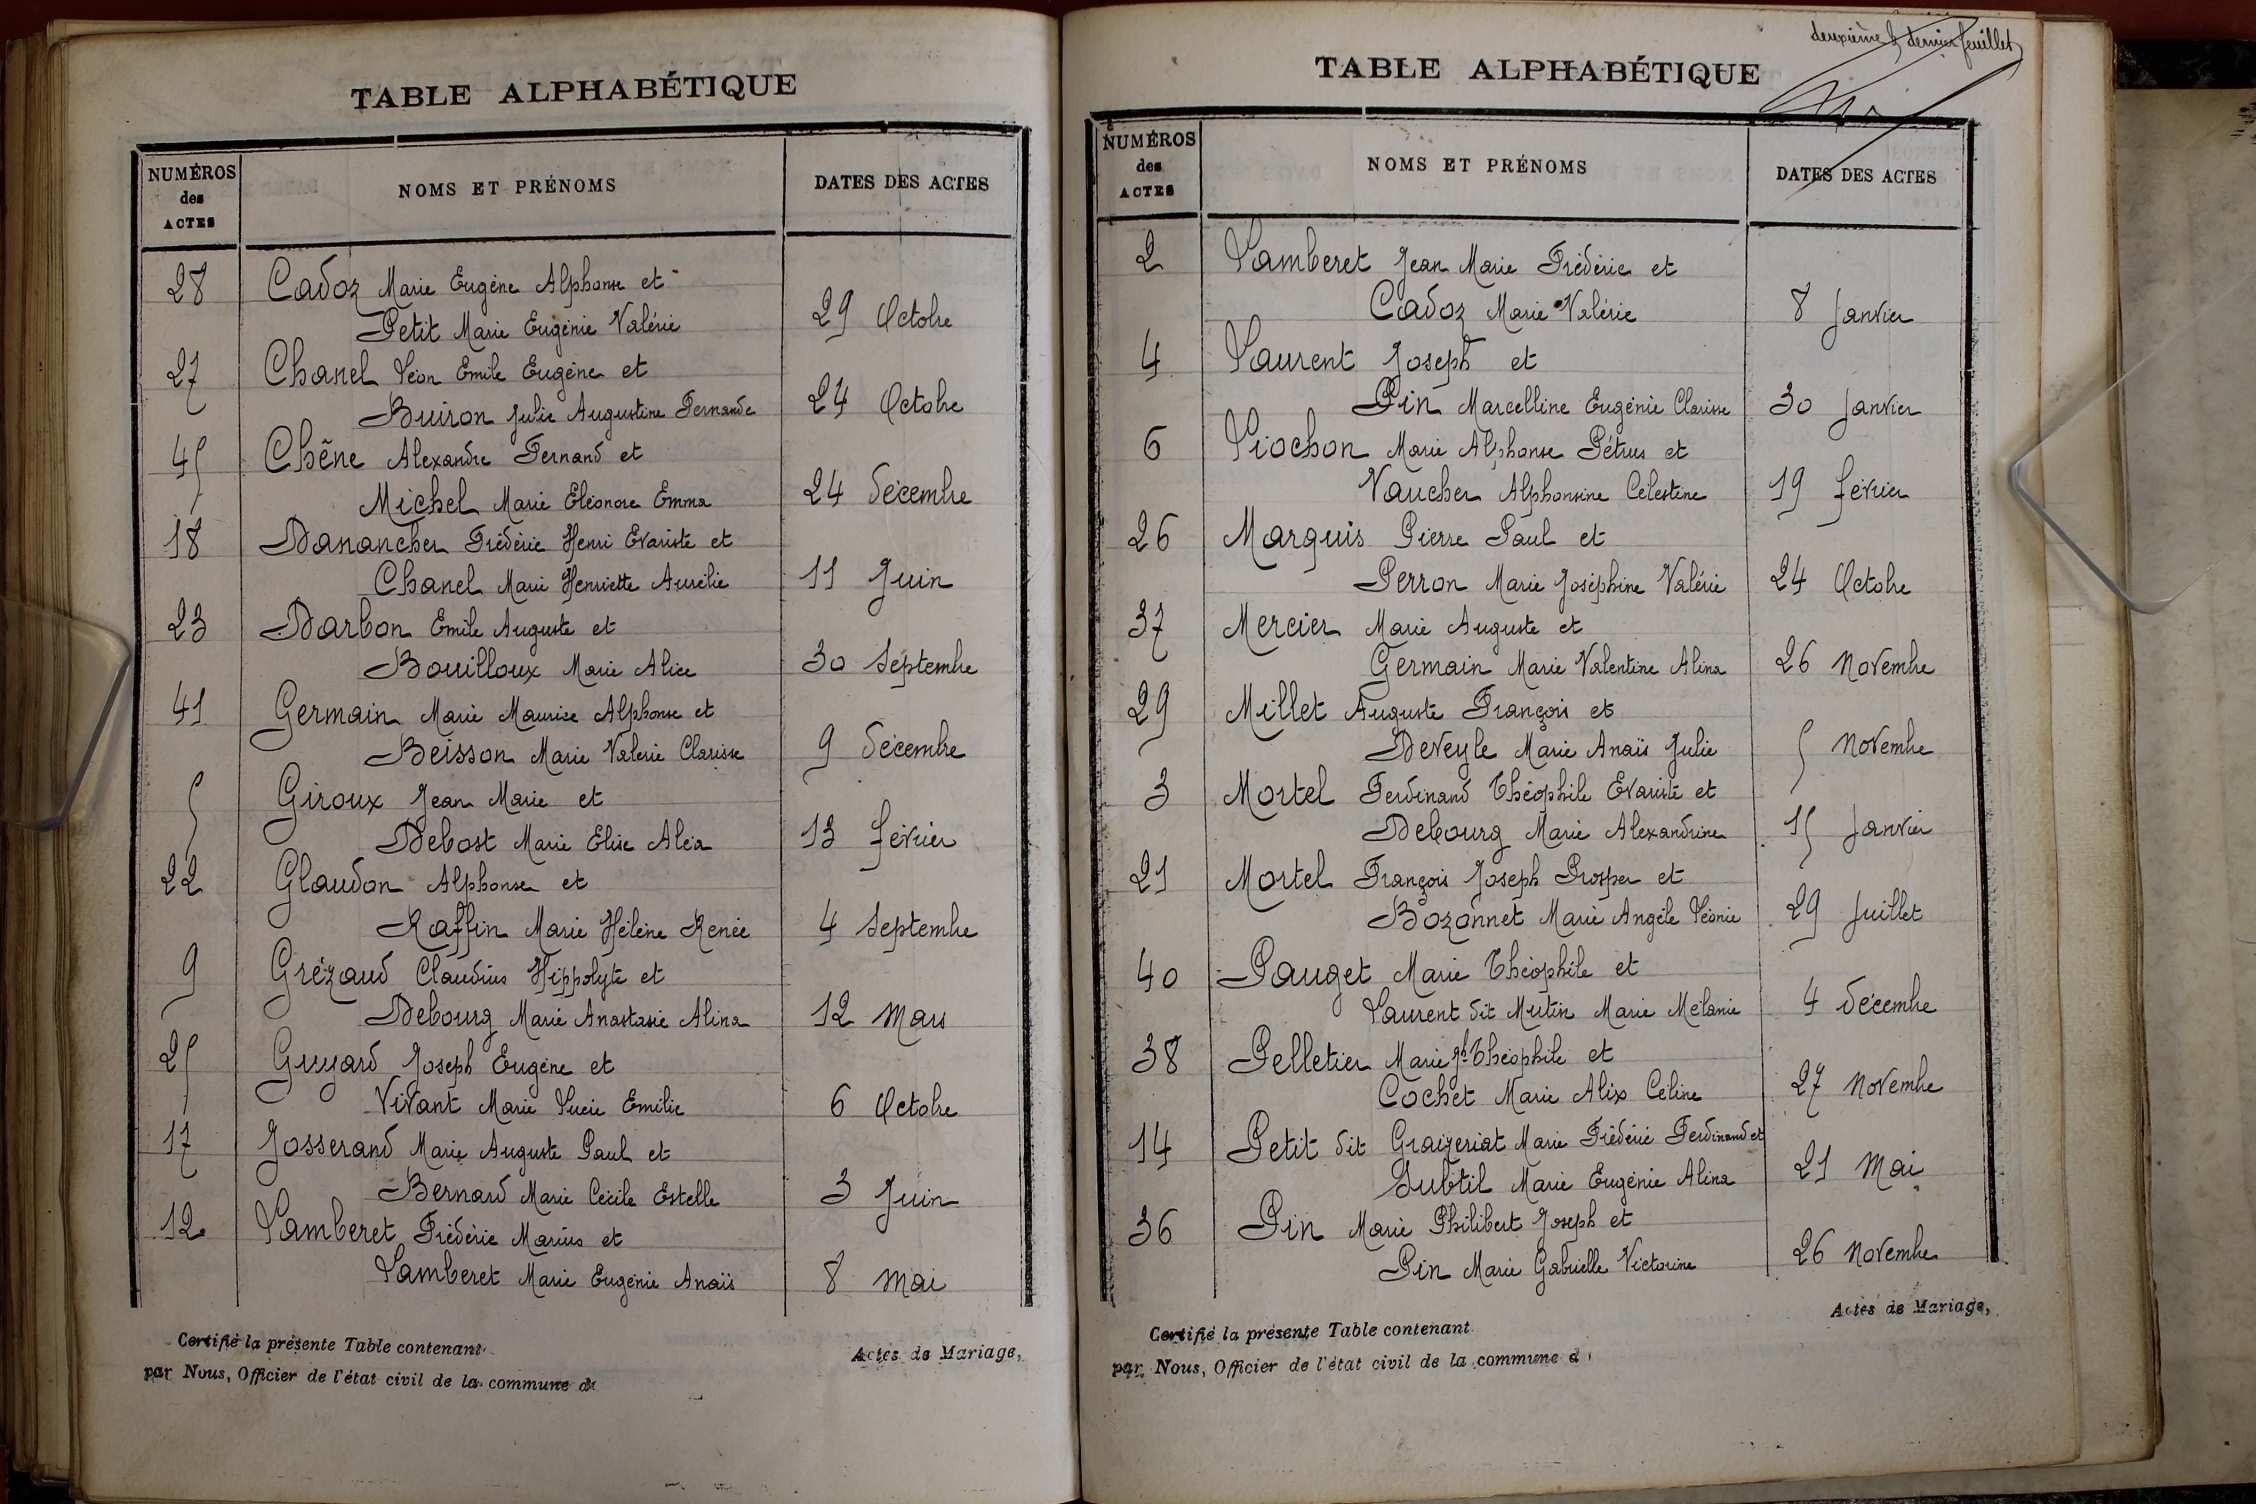 TABLE ALPHABÉTIQUE
NUMÉROS des ACTES
NOMS ET PRÉNOMS
DATES DES ACTES
28 Cadoz Marie Eugène Alphonse et
Petit Marie Eugénie Valérie 29 Octobre
27 Chanel Léon Emile Eugène et
Buiron Julie Augustine Fernande 24 Octobre
45 Chêne Alexandre Fernand et
Michel Marie Eléonore Emma 24 décembre
18 Danancher Frédéric Henri Evariste et
Chanel Marie Henriette Aurélie 11 Juin
23 Darbon Emile Auguste et
Bouilloux Marie Alice 30 Septembre
41 Germain Marie Maurice Alphonse et
Beisson Marie Valérie Clarisse 9 décembre
5 Giroux Jean Marie et
Debost Marie Elise Aléa 13 février
22 Glaudon Alphonse et
Raffin Marie Hélène Renée 4 Septembre
9 Grézaud Claudius Hippolyte et
Debourg Marie Anastasie Alina 12 Mars
25 Guyard Joseph Eugène et
Vivant Marie Lucie Emilie 6 Octobre
17 Josserand Marie Auguste Paul et
Bernard Marie Cécile Estelle 3 Juin
12 Lamberet Frédéric Marius et
Lamberet Marie Eugénie Anaïs 8 Mai
Certifié la présente Table contenant Actes de Mariage,
par Nous, Officier de l'état civil de la commune d
deuxième & dernier feuillet
TABLE ALPHABÉTIQUE
NUMÉROS des ACTES
NOMS ET PRÉNOMS
DATES DES ACTES
2 Lamberet Jean Marie Frédéric et
Cadoz Marie Valérie 8 Janvier
4 Laurent Joseph et
Pin Marcelline Eugénie Clarisse 30 Janvier
6 Liochon Marie Alphonse Pétrus et
Vaucher Alphonsine Célestine 19 février
26 Marquis Pierre Paul et
Perron Marie Joséphine Valérie 24 Octobre
37 Mercier Marie Auguste et
Germain Marie Valentine Alina 26 Novembre
29 Millet Auguste François et
Deveyle Marie Anaïs Julie 5 Novembre
3 Mortel Ferdinand Théophile Evariste et
Debourg Marie Alexandrine 15 Janvier
21 Mortel François Joseph Prosper et
Bozonnet Marie Angèle Léonie 29 Juillet
40 Pauget Marie Théophile et
Laurent dit Mutin Marie Mélanie 4 décembre
38 Pelletier Marie Jh Théophile et
Cochet Marie Alix Céline 27 Novembre
14 Petit dit Graizeriat Marie Frédéric Ferdinand et
Subtil Marie Eugénie Alina 21 Mai
36 Pin Marie Philibert Joseph et
Pin Marie Gabrielle Victorine 26 Novembre
Certifié la présente Table contenant Actes de Mariage,
par Nous, Officier de l'état civil de la commune d